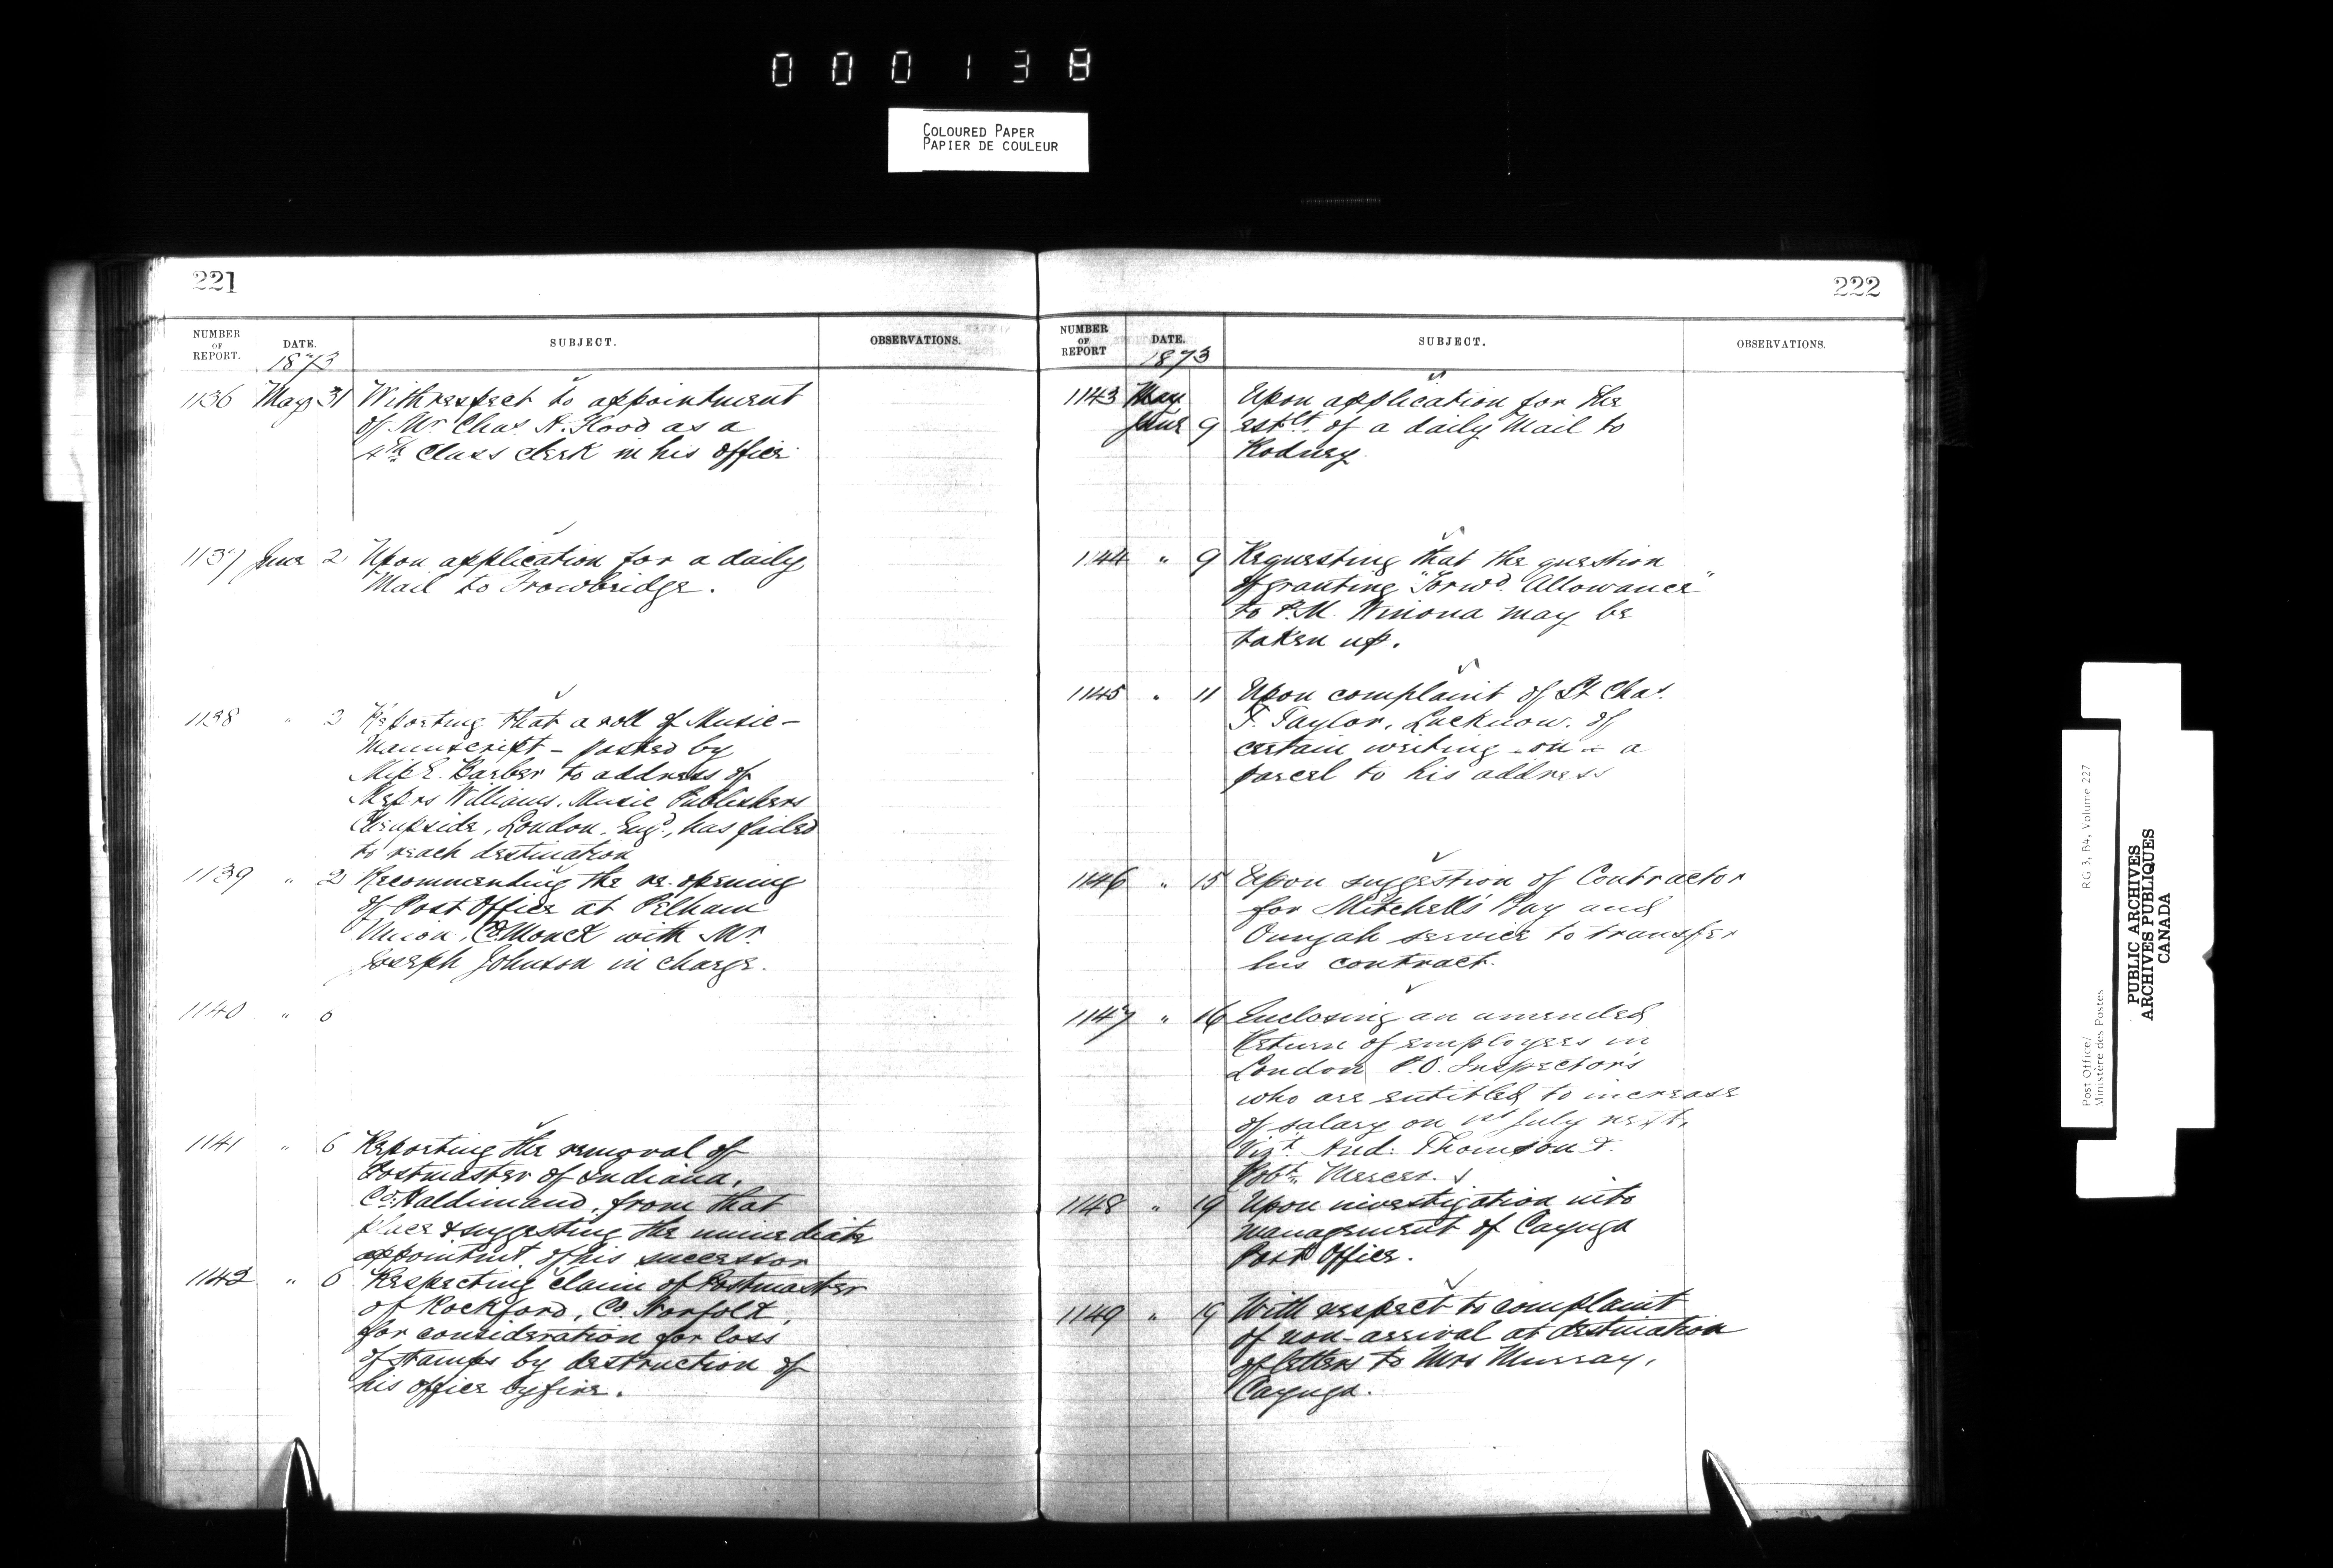 000138
COLOURED PAPER
PAPIER DE COULEUR
221
NUMBER OF REPORT. DATE. SUBJECT. OBSERVATIONS.
1873
1136 May 31 With respect to appointment
of Mr Chas. H. Hood as a
4th Class clerk in his office
1137 June 2 Upon application for a daily
Mail to Trowbridge.
1138 " 2 Reporting that a roll of Music-
Manuscript - posted by
Miss E. Barber to address of
Messrs Williams, Music Publishers
Cheapside, London, Engd, has failed
to reach destination
1139 " 2 Recommending the re-opening
of Post Office at Pelham
Union, Co. Monck with Mr.
Joseph Johnson in charge.
1140 " 6
1141 " 6 Reporting the removal of
Postmaster of Indiana,
Co. Haldimand, from that
place & suggesting the immediate
appointmt. of his successor
1142 " 6 Respecting claim of Postmaster
of Rockford, Co. Norfolk,
for consideration for loss
of stamps by destruction of
his office by fire.
222
NUMBER OF REPORT DATE. SUBJECT. OBSERVATIONS.
1873
1143 May Upon application for the
June 9 estlt. of a daily Mail to
Rodney
1144 " 9 Requesting that the question
of granting "Forwd. Allowance"
to P.M. Winona may be
taken up.
1145 " 11 Upon complaint of St Chas.
F. Taylor, Lucknow, of
certain writing on a
parcel to his address
1146 " 15 Upon suggestion of Contractor
for Mitchell's Bay and
Oungah service to transfer
his contract.
1147 " 16 Enclosing an amended
Return of employees in
London P.O. Inspector's
who are entitled to increase
of salary on 1st July next,
Vizt. And: Thomson &
Robt. Mercer.
1148 " 19 Upon investigation into
management of Cayuga
Post Office.
1149 " 19 With respect to complaint
of non-arrival at destination
of letters to Mrs Murray,
Cayuga.
Post Office/
Ministère des Postes
RG 3, B4, Volume 227
PUBLIC ARCHIVES
ARCHIVES PUBLIQUES
CANADA